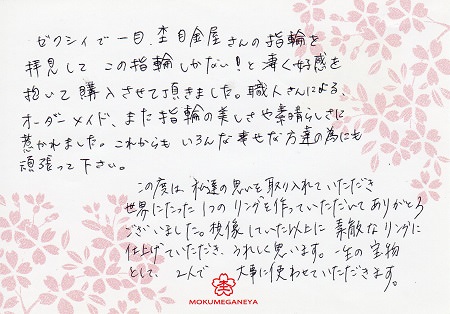 ゼクシィで一目、杢目金屋さんの指輪を
拝見して この指輪しかない！と凄く好感を
抱いて購入させて頂きました。職人さんによる、
オーダーメイド、また指輪の美しさや素晴らしさに
惹かれました。これからも いろんな幸せな方達の為にも
頑張って下さい。
この度は、私達の思いを取り入れていただき
世界にたった1つのリングを作っていただいてありがとう
ございました。想像していた以上に 素敵なリングに
仕上げていただき、うれしく思います。一生の宝物
として、2人で 大事に使わせていただきます。
MOKUMEGANEYA